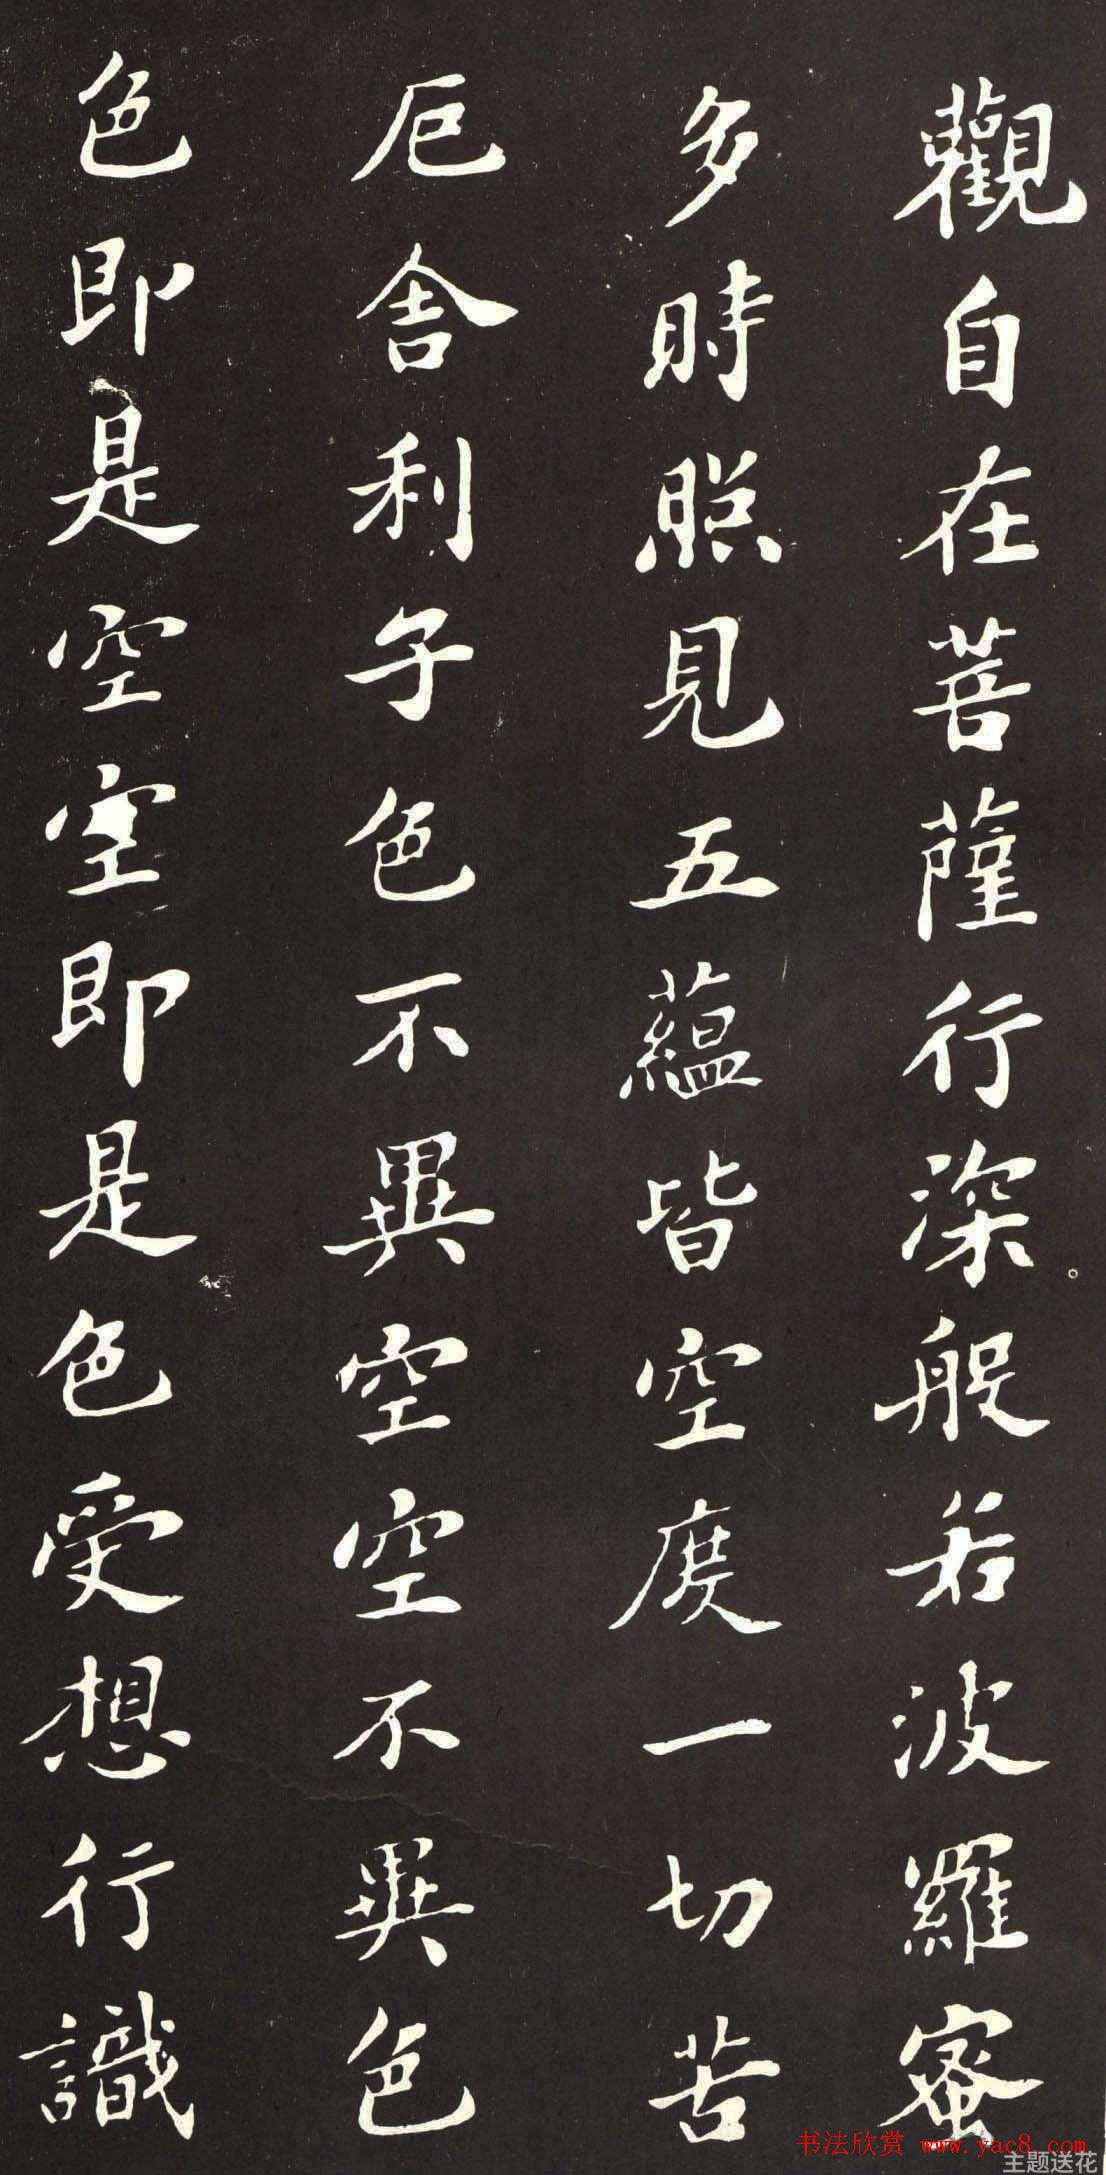 觀自在菩薩行深般若波羅蜜
多時照見五蘊皆空度一切苦
厄舍利子色不異空空不異色
色即是空空即是色受想行識
书法欣赏 www.yac8.com
主题送花